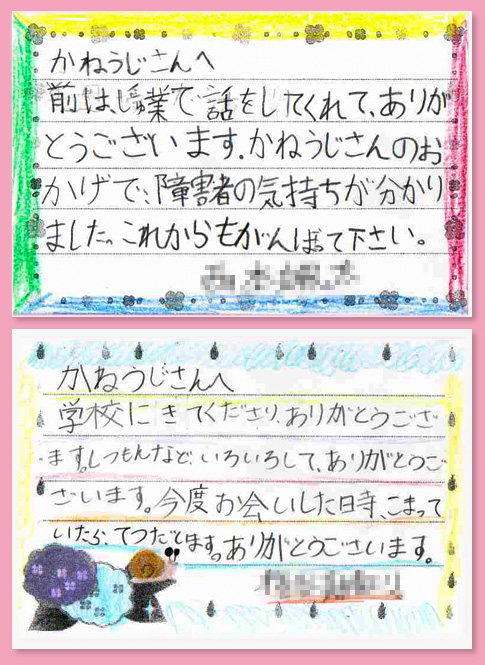 かねうじさんへ
前は、授業で話をしてくれて、ありが
とうございます。かねうじさんのお
かげで、障害者の気持ちが分かり
ました。これからもがんばって下さい。
かねうじさんへ
学校にきてくださり、ありがとうござ
います。しつもんなど、いろいろして、ありがとうご
ざいます。今度お会いした日寺、こまって
いたら、てつだいます。ありがとうございます。